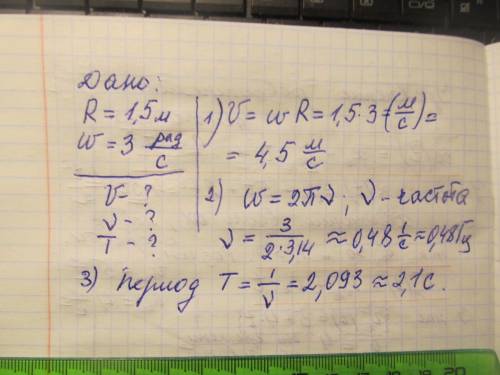 Дано:
R = 1,5 м
ω = 3 рад/с
V - ?
ν - ?
T - ?
1) V = ωR = 1,5·3 (м/с) =
= 4,5 м/с
2) ω = 2πν; ν - частота
ν = 3/(2·3,14) ≈ 0,48 1/с ≈ 0,48 Гц
3) период T = 1/ν = 2,093 ≈ 2,1 с.
15 16 17 18 19 20